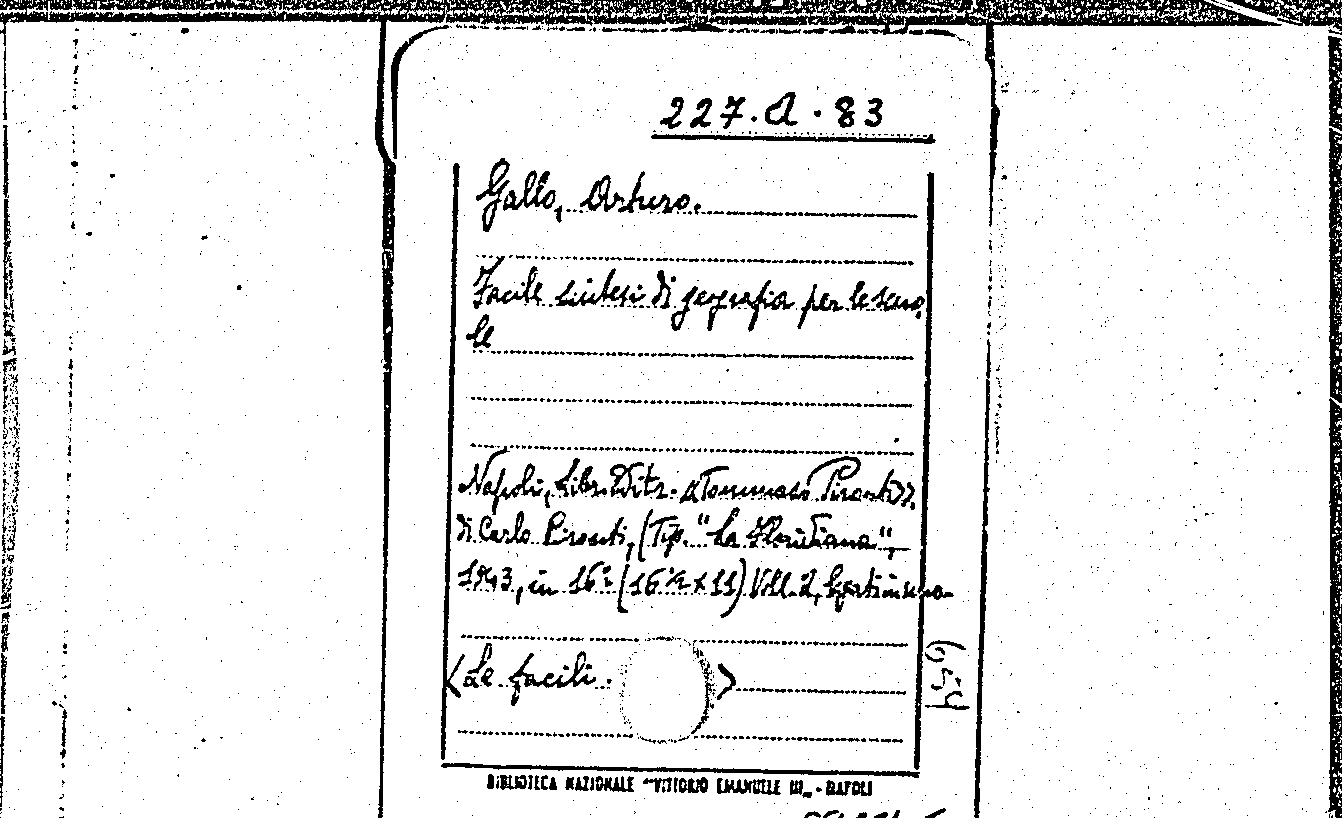 227.A.83
Gallo, Arturo.
Facile sintesi di geografia per le scuo,
le
Napoli, Libr. Editr. «Tommaso Pironti»
di Carlo Pironti, (Tip. "La Floridiana",
1943, in 16° (16 x 11) Voll. 2,
<Le facili . >
BIBLIOTECA NAZIONALE "VITTORIO EMANUELE III„ - NAPOLI